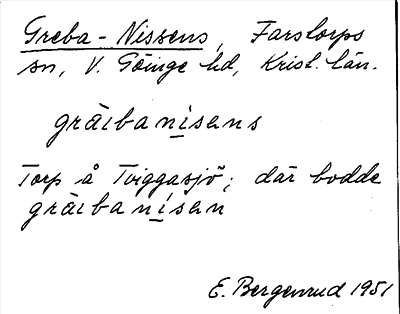 Greba-Nissens, Farstorps
sn, V. Göinge hd, Krist. län.
gräibanísens
Torp å Tviggasjö; där bodde
gräibanísen
E. Bergenrud 1951